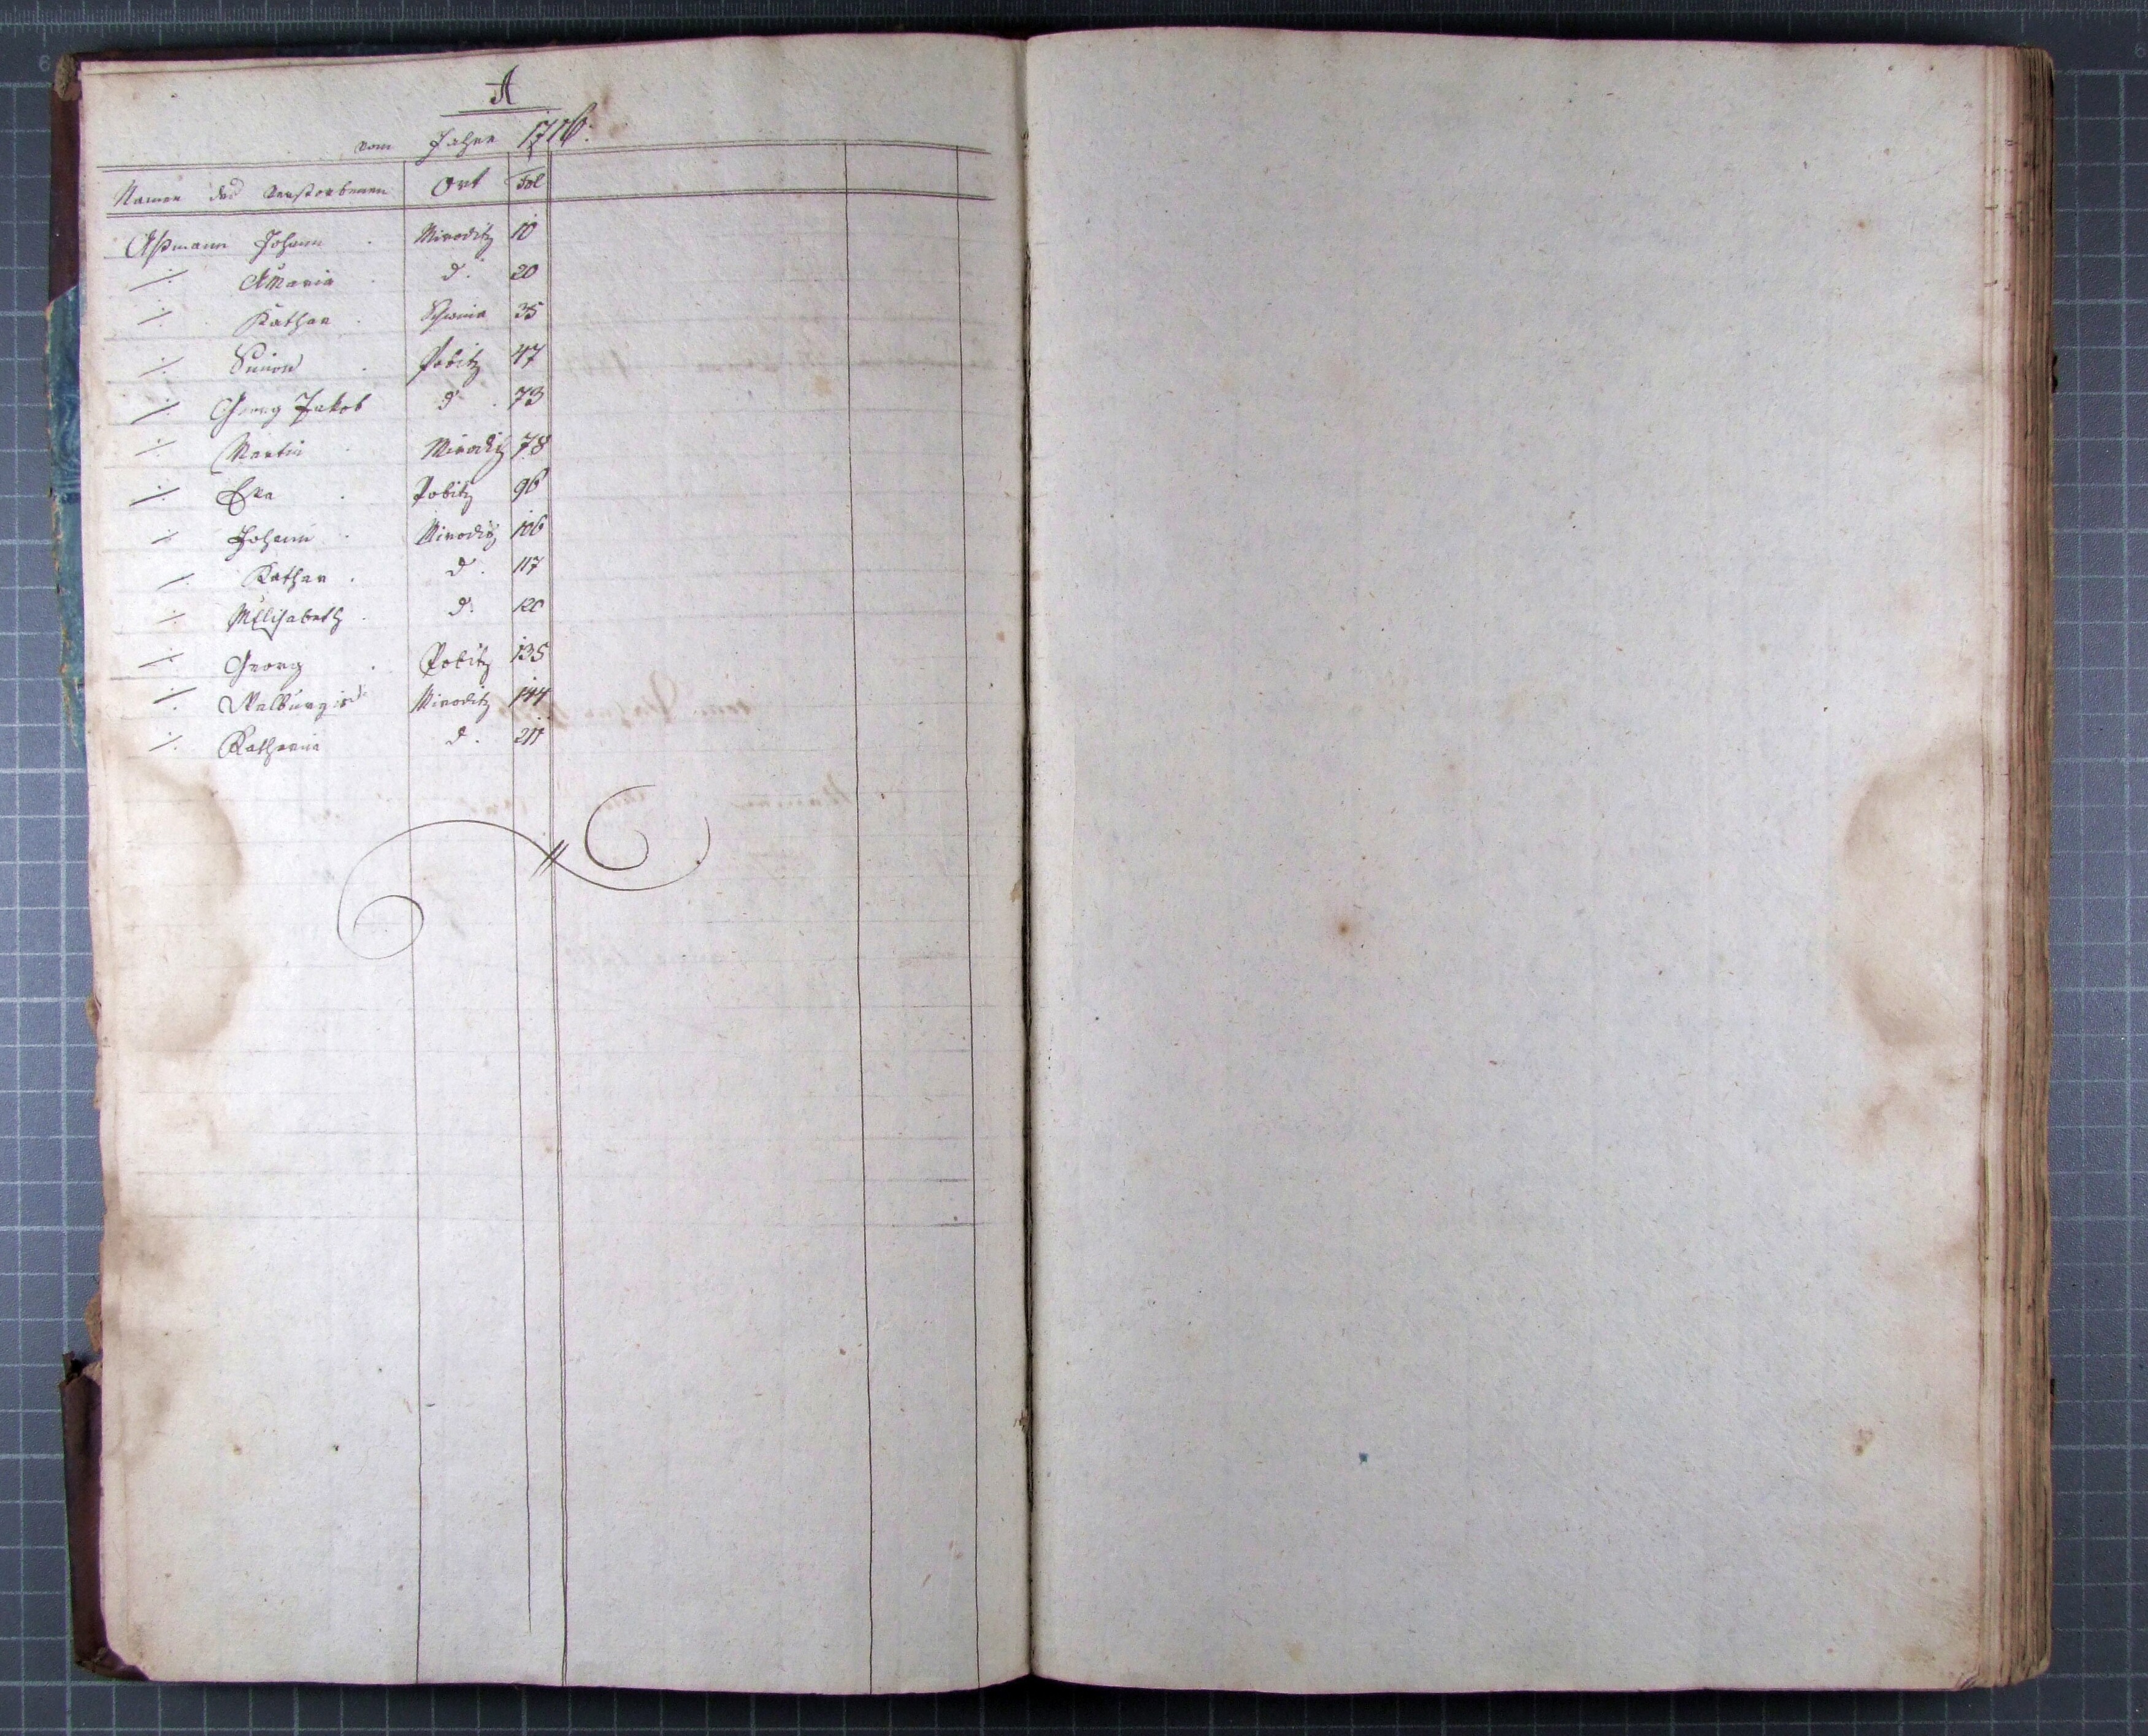 A
vom Jahre 1716.
Namen des Verstorbenen Ort Fol
Aßmann Johann Miroditz 10
-/. AMaria d. 20
-/. Kathar 35
-/. Simon Pobitz 47
-/. Georg Jakob d. 73
-/. Martin Miroditz 78
-/. Eva Pobitz 96
-/. Johann Miroditz 106
-/. Kathar d. 117
-/. MElisabeth d. 120
-/. Georg Pobitz 135
-/. Walburgis Miroditz 144
-/. Katharina d. 211